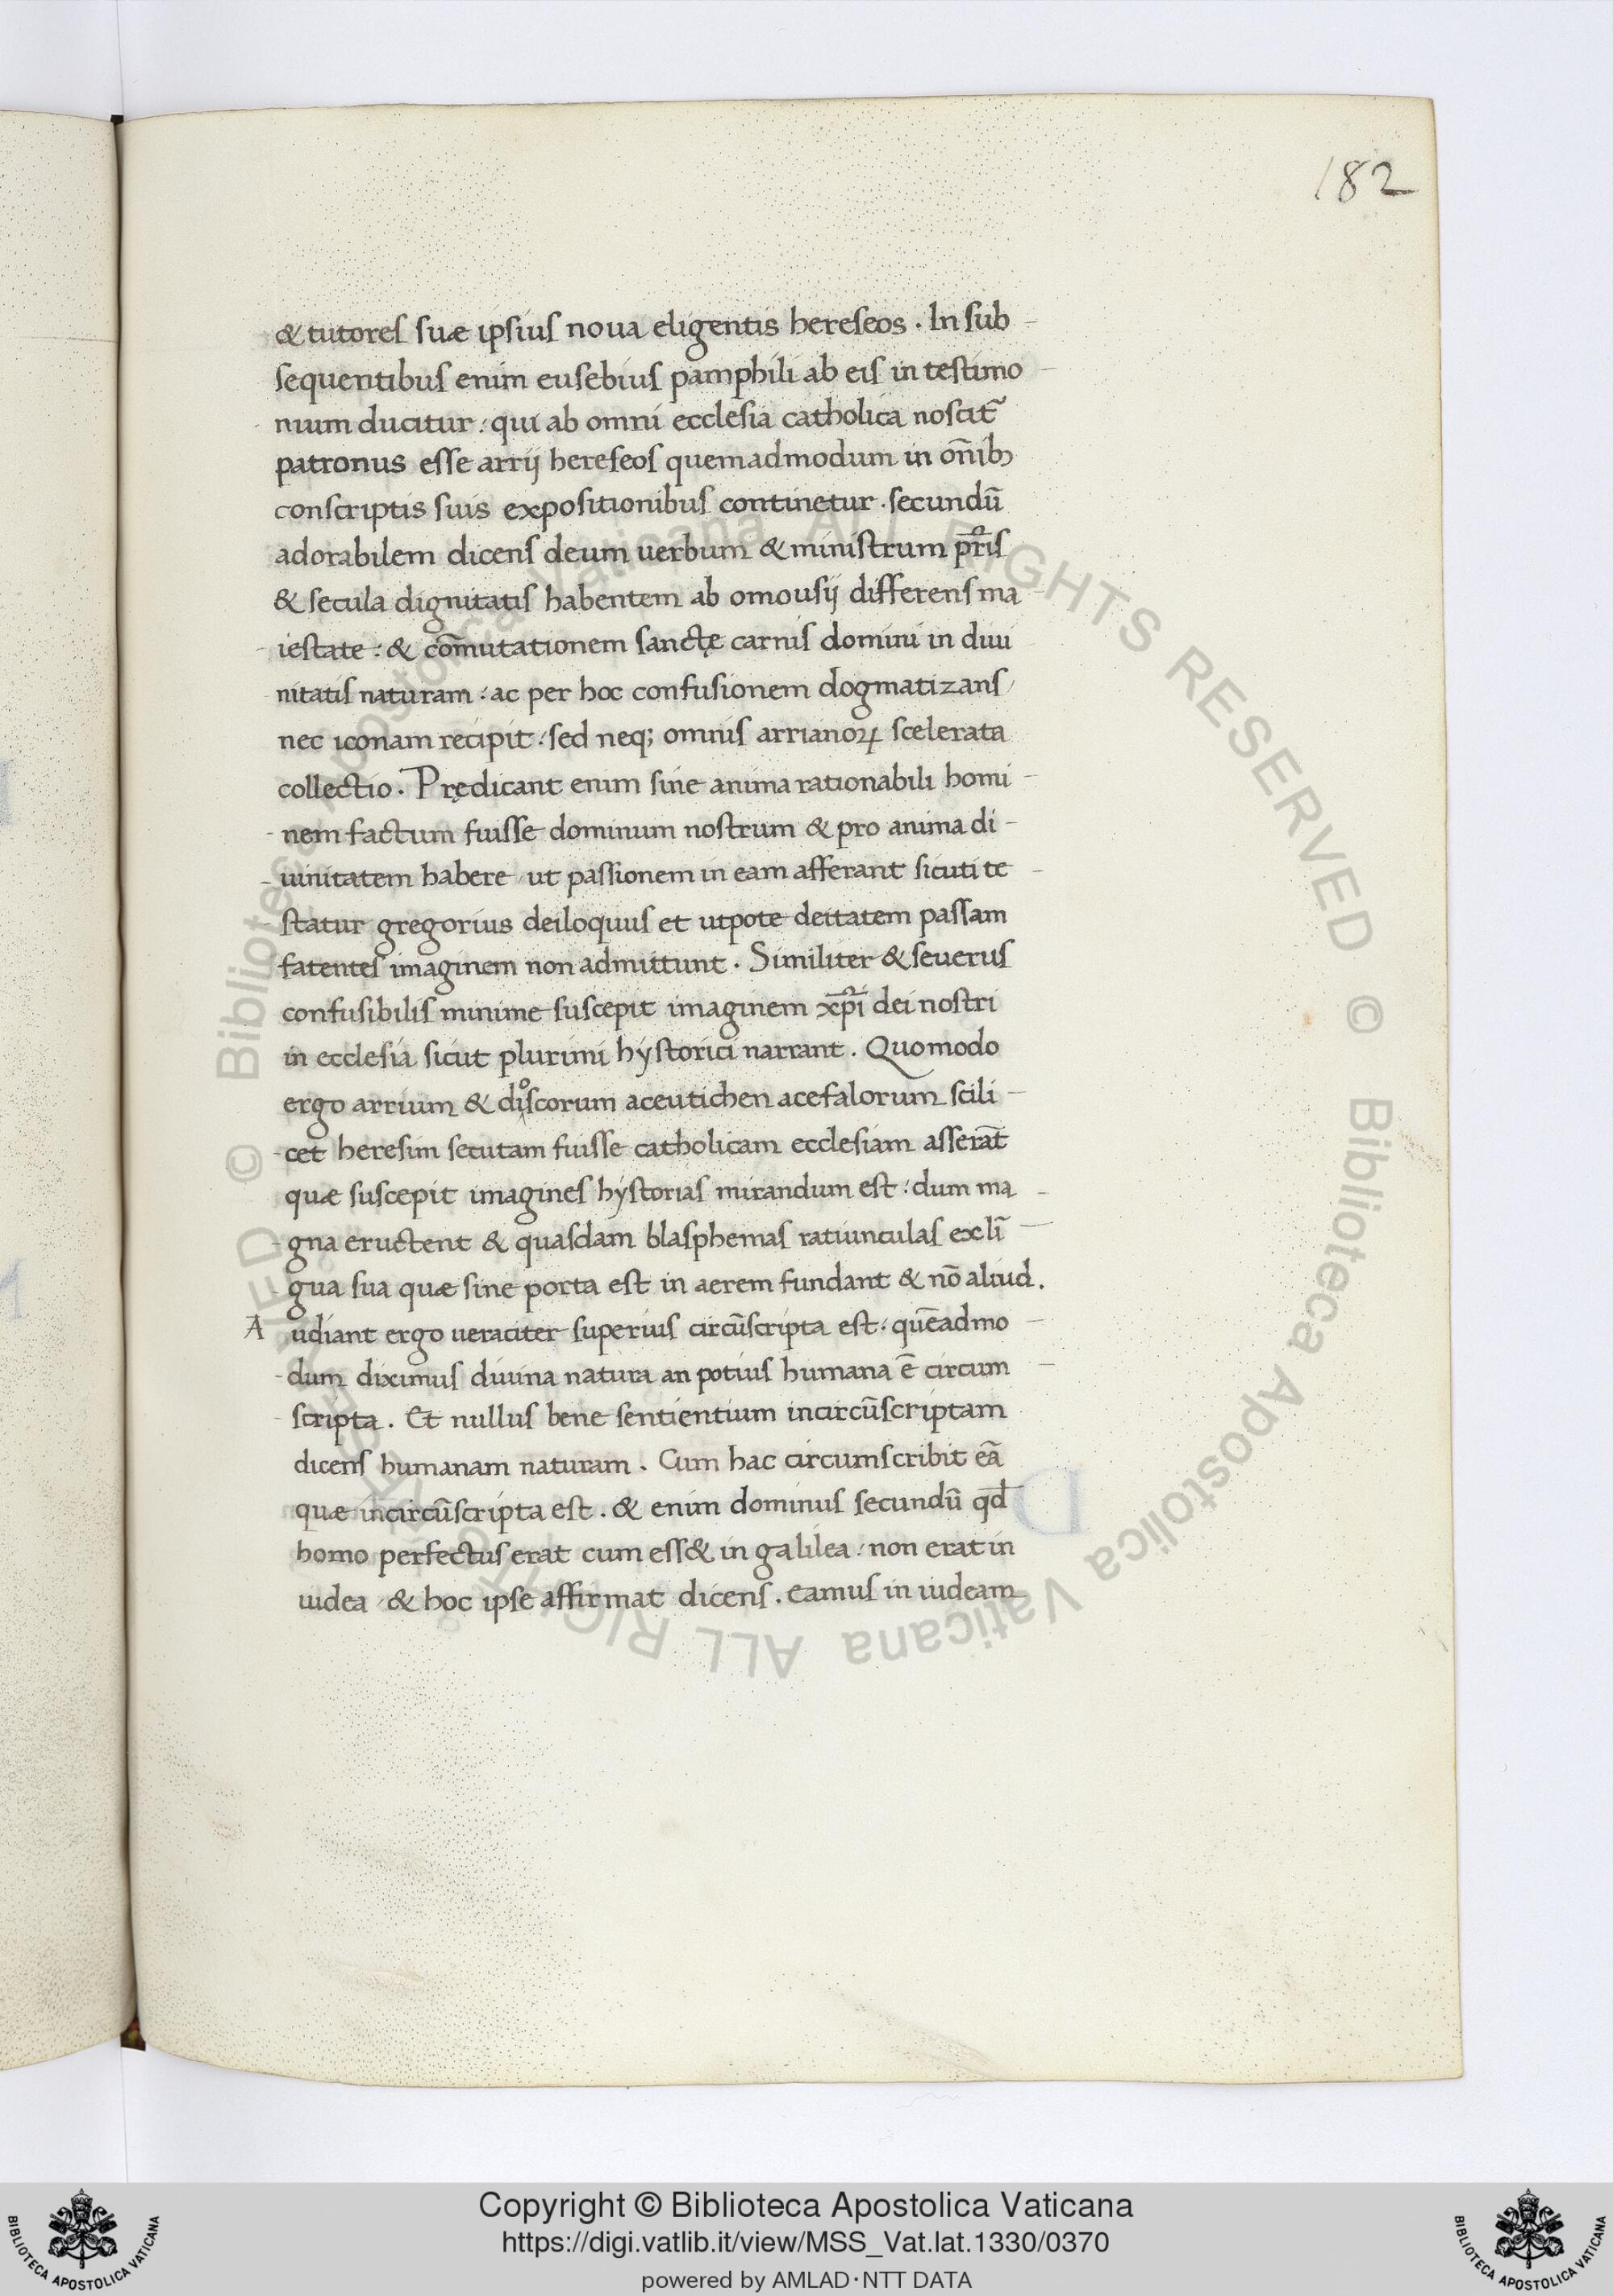 182
& tutores suæ ipsius noua eligentis hereseos . In sub
sequentibus enim eusebius pamphili ab eis in testimo
nium ducitur : qui ab omni ecclesia catholica noscit᷑
patronus esse arrij hereseos quemadmodum in om̄ibꝫ
conscriptis suis expositionibus continetur . secundū
adorabilem dicens deum uerbum & ministrum pr̄is
& secula dignitatis habentem ab omousij differens ma
iestate : & com̄utationem sanctę carnis domini in diui
nitatis naturam : ac per hoc confusionem dogmatizans /
nec iconam recipit : sed neq; omnis arrianoꝝ scelerata
collectio . Prędicant enim sine anima rationabili homi
nem factum fuisse dominum nostrum & pro anima di
uinitatem habere / ut passionem in eam afferant sicuti te
statur gregorius deiloquus et utpote deitatem passam
fatentes imaginem non admittunt . Similiter & seuerus
confusibilis minime suscepit imaginem xp̄i dei nostri
in ecclesia sicut plurimi hystorici narrant . Quomodo
ergo arrium & diͦscorum aceutichen acefalorum scili
cet heresim secutam fuisse catholicam ecclesiam asserāt
quæ suscepit imagines hystorias mirandum est : dum ma
gna eructent & quasdam blasphemas ratiunculas ex lī
gua sua quæ sine porta est in aerem fundant & nō aliud .
A udiant ergo ueraciter superius circūscripta est : quēadmo
dum diximus diuina natura an potius humana ē circum
scripta . Et nullus bene sentientium incircūscriptam
dicens humanam naturam . Cum hac circumscribit eā
quæ incircūscripta est . & enim dominus secundū qd̄
homo perfectus erat cum ess& in galilea : non erat in
iudea / & hoc ipse affirmat dicens . eamus in iudeam
© Biblioteca Apostolica Vaticana ALL RIGHTS RESERVED © Biblioteca Apostolica Vaticana ALL RIGHTS RESERVED
Copyright © Biblioteca Apostolica Vaticana
https://digi.vatlib.it/view/MSS_Vat.lat.1330/0370
powered by AMLAD・NTT DATA
BIBLIOTECA APOSTOLICA VATICANA
BIBLIOTECA APOSTOLICA VATICANA